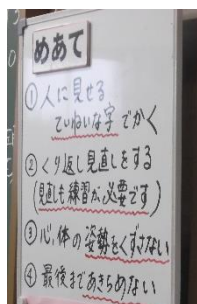 めあて
①人に見せる
ていねいな字でかく
②くり返し見直しをする
(見直しも練習が必要です)
③心、体の姿勢をくずさない
④最後まであきらめない